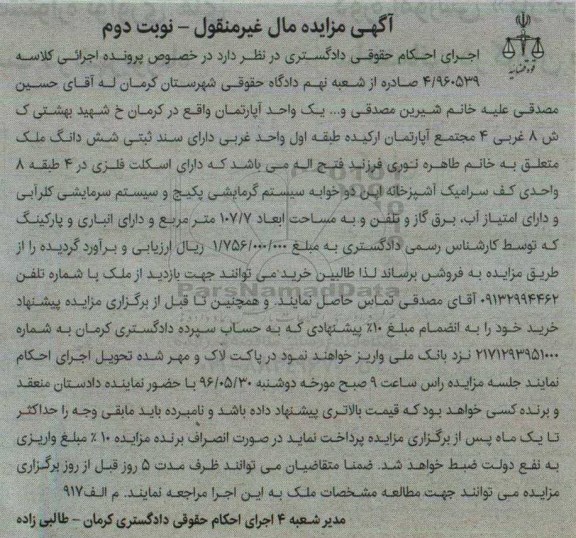 آگهی مزایده مال غیرمنقول – نوبت دوم
قوه قضاییه
اجرای احکام حقوقی دادگستری در نظر دارد در خصوص پرونده اجرائی کلاسه
۴/۹۶۰۵۳۹ صادره از شعبه نهم دادگاه حقوقی شهرستان کرمان له آقای حسین
مصدقی علیه خانم شیرین مصدقی و... یک واحد آپارتمان واقع در کرمان خ شهید بهشتی ک
ش ۸ غربی ۴ مجتمع آپارتمان ارکیده طبقه اول واحد غربی دارای سند ثبتی شش دانگ ملک
متعلق به خانم طاهره نوری فرزند فتح اله می باشد که دارای اسکلت فلزی در ۴ طبقه ۸
واحدی کف سرامیک آشپزخانه اپن دو خوابه سیستم گرمایشی پکیج و سیستم سرمایشی کلرآبی
و دارای امتیاز آب، برق گاز و تلفن و به مساحت ابعاد ۱۰۷/۷ متر مربع و دارای انباری و پارکینگ
که توسط کارشناس رسمی دادگستری به مبلغ ۱/۷۵۶/۰۰۰/۰۰۰ ریال ارزیابی و برآورد گردیده را از
طریق مزایده به فروش برساند لذا طالبین خرید می توانند جهت بازدید از ملک با شماره تلفن
۰۹۱۳۲۹۹۴۴۶۲ آقای مصدقی تماس حاصل نمایند. و همچنین تا قبل از برگزاری مزایده پیشنهاد
خرید خود را به انضمام مبلغ ۱۰٪ پیشنهادی که به حساب سپرده دادگستری کرمان به شماره
۲۱۷۱۲۹۳۹۵۱۰۰۰ نزد بانک ملی واریز خواهند نمود در پاکت لاک و مهر شده تحویل اجرای احکام
نمایند جلسه مزایده راس ساعت ۹ صبح مورخه دوشنبه ۹۶/۰۵/۳۰ با حضور نماینده دادستان منعقد
و برنده کسی خواهد بود که قیمت بالاتری پیشنهاد داده باشد و نامبرده باید مابقی وجه را حداکثر
تا یک ماه پس از برگزاری مزایده پرداخت نماید در صورت انصراف برنده مزایده ۱۰ ٪ مبلغ واریزی
به نفع دولت ضبط خواهد شد. ضمنا متقاضیان می توانند ظرف مدت ۵ روز قبل از روز برگزاری
مزایده می توانند جهت مطالعه مشخصات ملک به این اجرا مراجعه نمایند. م الف ۹۱۷
مدیر شعبه ۴ اجرای احکام حقوقی دادگستری کرمان – طالبی زاده
ParsNamadData